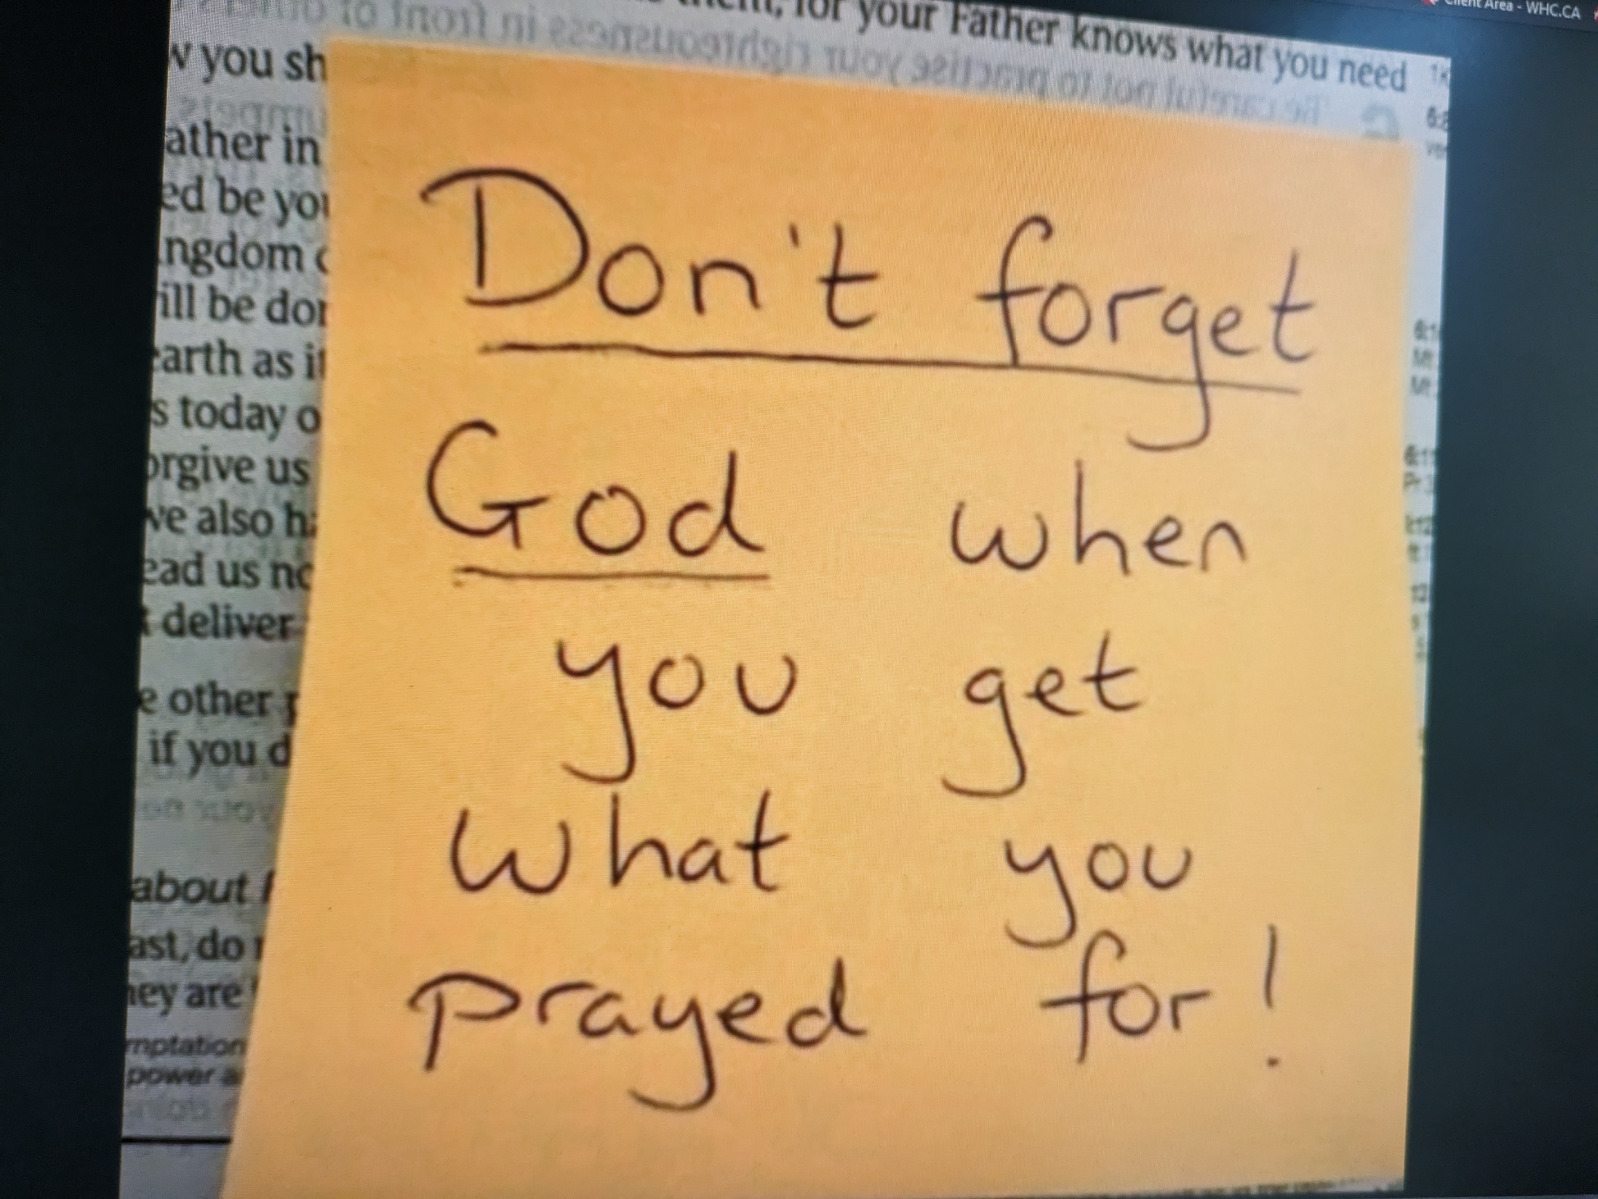 Client Area - WHC.CA
them, for your Father knows what you need
you sh
ather in
ed be you
ngdom
ill be don
earth as it
s today
orgive us
ve also ha
ead us no
deliver
e other
if you d
about
ast, do
hey are
mptation
power
Don't forget
God when
you get
what you
prayed for!